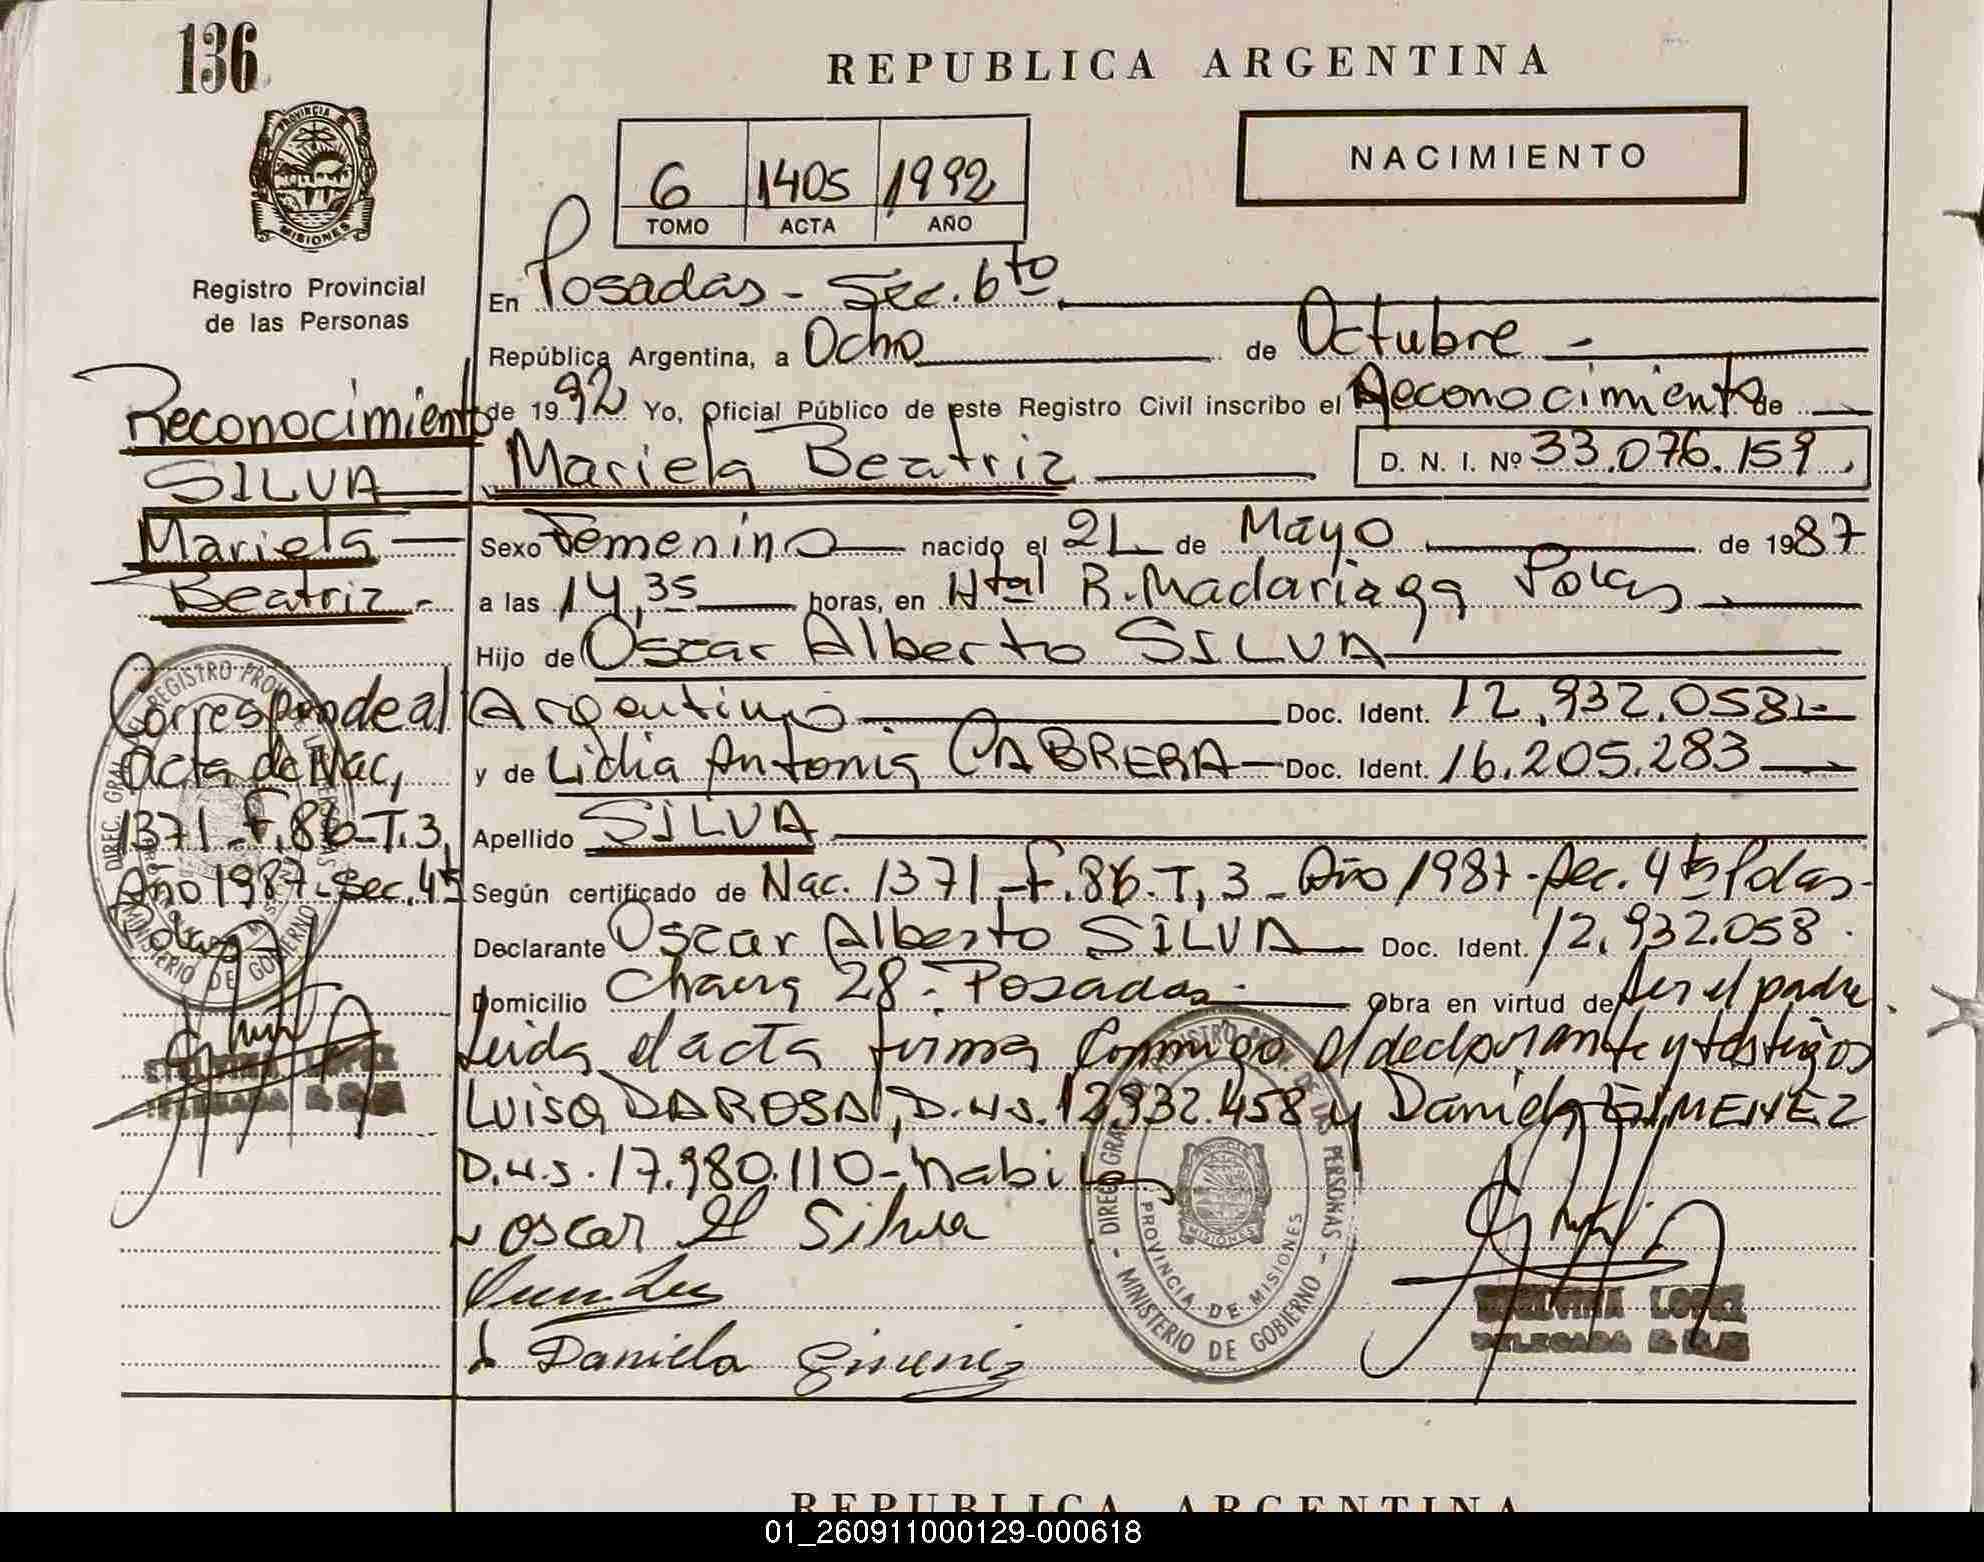 136
REPUBLICA ARGENTINA
NACIMIENTO
6 1405 1992
TOMO ACTA AÑO
PROVINCIA DE MISIONES
Registro Provincial
de las Personas
En Posadas - Sec. 6to
República Argentina, a Ocho de Octubre -
de 1992 Yo, Oficial Público de este Registro Civil inscribo el Reconocimiento de
Mariela Beatriz D. N. I. Nº 33.076.159
Sexo Femenino nacido el 21 de Mayo de 1987
a las 14,35 horas, en Htal R. Madariaga Pdas
Hijo de Oscar Alberto SILVA
Argentino Doc. Ident. 12.932.058
y de Lidia Antonia CABRERA Doc. Ident. 16.205.283
Apellido SILVA
Según certificado de Nac. 1371 - F. 86 - T, 3 - Año 1987 - Sec. 4ta Pdas -
Declarante Oscar Alberto SILVA Doc. Ident. 12.932.058
Domicilio Chacra 28 - Posadas - Obra en virtud de ser el padre
Leida el acta firma conmigo el declarante y testigos
Luisa DA ROSA, D.N.I. 12932.458 y Daniela GIMENEZ
D.N.I. 17.980.110 - habiles
Oscar A Silva
Daniela Gimenez
Reconocimiento
SILVA
Mariela
Beatriz -
Corresponde al
acta de Nac,
1371 - F. 86 - T. 3
Año 1987 - Sec. 4ta
Pdas
DIREC. GRAL. DEL REGISTRO PROV. DE LAS PERSONAS
MINISTERIO DE GOBIERNO
PROVINCIA DE MISIONES
LOPEZ
DELEGADA
REPUBLICA ARGENTINA
01_260911000129-000618